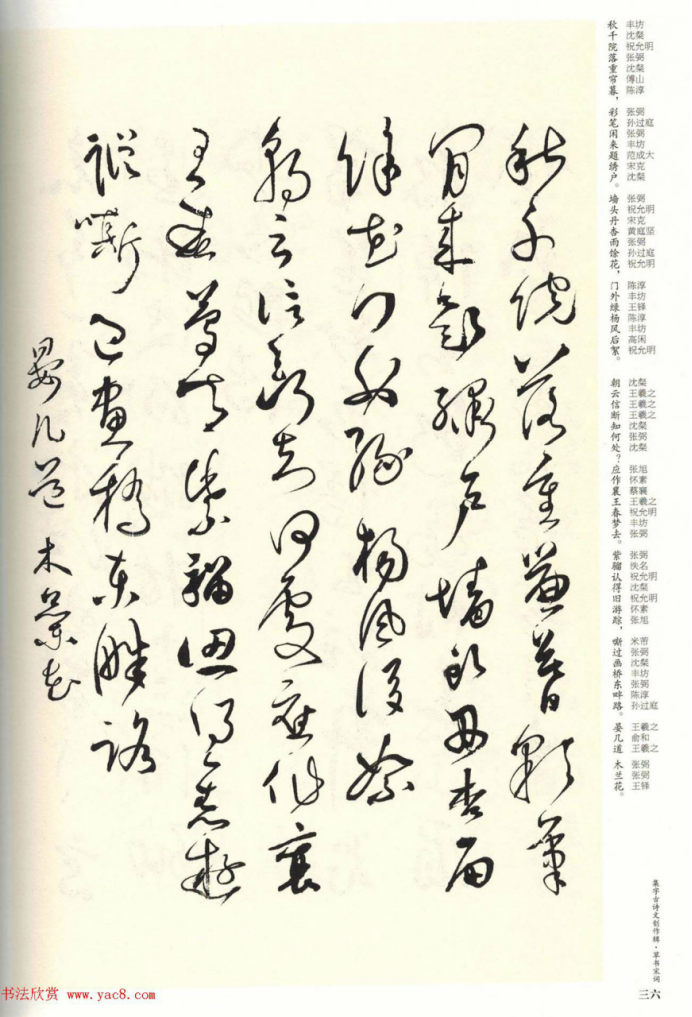 秋千院落重簾暮彩筆
閒來題繡戶墻頭丹杏雨
餘花門外綠楊風後絮
朝云信斷知何處應作襄
王春夢去紫騮認得舊遊
蹤嘶過畫橋東畔路
晏几道 木蘭花
丰坊 沈粲 祝允明 张弼 沈粲 傅山 陈淳
秋千院落重帘暮，
张弼 孙过庭 张弼 丰坊 范成大 宋克 沈粲
彩笔闲来题绣户。
张弼 祝允明 宋克 黄庭坚 张弼 孙过庭 祝允明
墙头丹杏雨馀花，
陈淳 丰坊 王铎 陈淳 丰坊 高闲 祝允明
门外绿杨风后絮。
沈粲 王羲之 王羲之 王羲之 沈粲 张弼 沈粲
朝云信断知何处？
张旭 怀素 蔡襄 王羲之 祝允明 丰坊 张弼
应作襄王春梦去。
张弼 佚名 祝允明 沈粲 祝允明 怀素 张旭
紫骝认得旧游踪，
米芾 张弼 沈粲 丰坊 张弼 陈淳 孙过庭
嘶过画桥东畔路。
王羲之 俞和 王羲之
晏几道
张弼 张弼 王铎
木兰花。
集字古诗文创作辑·草书宋词
三六
书法欣赏 www.yac8.com